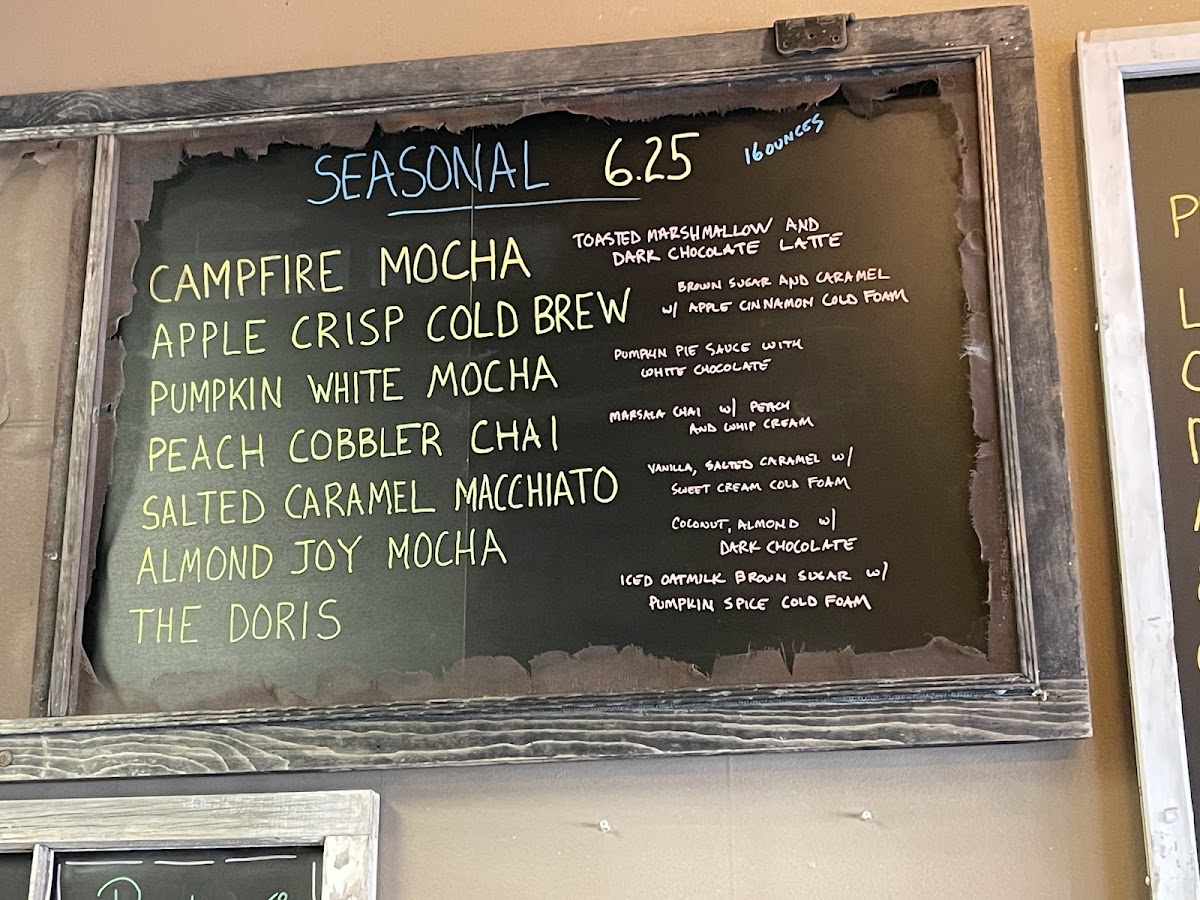 SEASONAL 6.25 16 OUNCES
CAMPFIRE MOCHA
TOASTED MARSHMALLOW AND
DARK CHOCOLATE LATTE
APPLE CRISP COLD BREW
BROWN SUGAR AND CARAMEL
W/ APPLE CINNAMON COLD FOAM
PUMPKIN WHITE MOCHA
PUMPKIN PIE SAUCE WITH
WHITE CHOCOLATE
PEACH COBBLER CHAI
MARSALA CHAI W/ PEACH
AND WHIP CREAM
SALTED CARAMEL MACCHIATO
VANILLA, SALTED CARAMEL W/
SWEET CREAM COLD FOAM
ALMOND JOY MOCHA
COCONUT, ALMOND W/
DARK CHOCOLATE
THE DORIS
ICED OATMILK BROWN SUGAR W/
PUMPKIN SPICE COLD FOAM